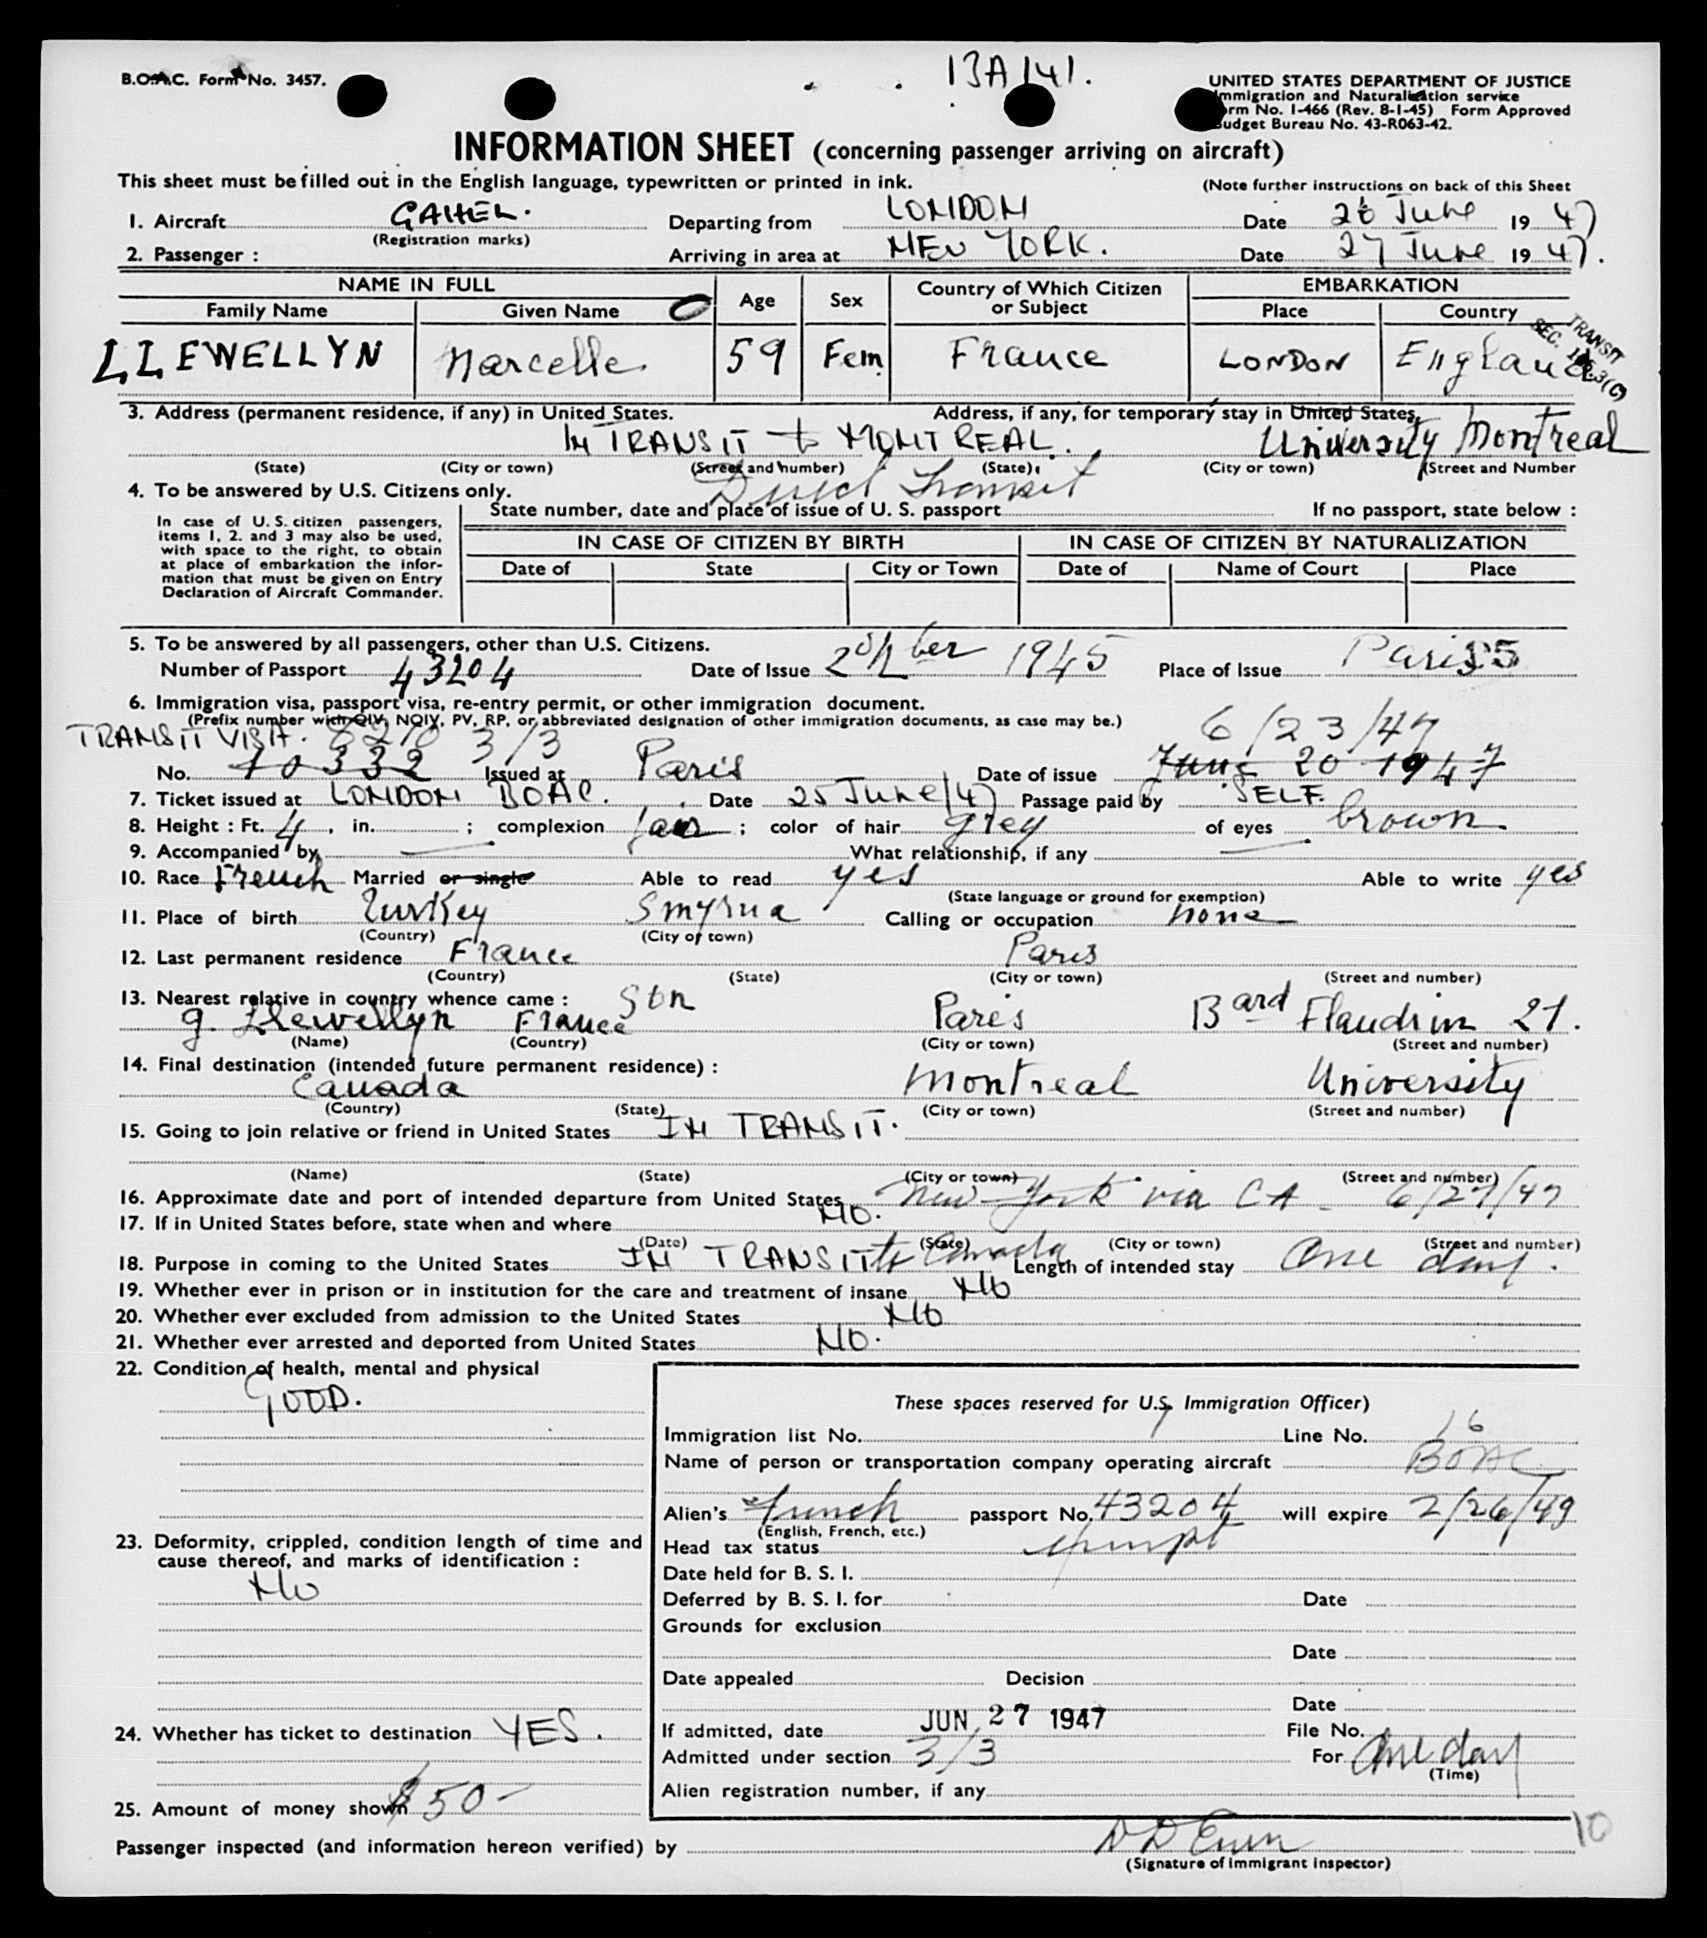 B.O.A.C. Form No. 3457.
13A141.
UNITED STATES DEPARTMENT OF JUSTICE
Immigration and Naturalization service
Form No. I-466 (Rev. 8-1-45) Form Approved
Budget Bureau No. 43-R063-42.
INFORMATION SHEET (concerning passenger arriving on aircraft)
This sheet must be filled out in the English language, typewritten or printed in ink. (Note further instructions on back of this Sheet
1. Aircraft GAHEL. Departing from LONDON Date 26 June 19 47
(Registration marks)
2. Passenger : Arriving in area at NEW YORK. Date 27 June 19 47.
NAME IN FULL Age Sex Country of Which Citizen or Subject EMBARKATION
Family Name Given Name Place Country
TRANSIT
LLEWELLYN Marcelle. 59 Fem France LONDON England
3. Address (permanent residence, if any) in United States. Address, if any, for temporary stay in United States,
IN TRANSIT to MONTREAL. University Montreal
(State) (City or town) (Street and number) (State) (City or town) (Street and Number
Direct Transit
4. To be answered by U.S. Citizens only.
State number, date and place of issue of U. S. passport If no passport, state below :
In case of U. S. citizen passengers,
items 1, 2, and 3 may also be used,
with space to the right, to obtain
at place of embarkation the infor-
mation that must be given on Entry
Declaration of Aircraft Commander.
IN CASE OF CITIZEN BY BIRTH IN CASE OF CITIZEN BY NATURALIZATION
Date of State City or Town Date of Name of Court Place
5. To be answered by all passengers, other than U.S. Citizens.
Number of Passport 43204 Date of Issue 1945 Place of Issue Paris
6. Immigration visa, passport visa, re-entry permit, or other immigration document.
(Prefix number with QIV, NQIV, PV, RP, or abbreviated designation of other immigration documents, as case may be.)
TRANSIT VISA. 8270 3/3 6/23/47
No. 10332 Issued at Paris Date of issue June 20 1947
7. Ticket issued at LONDON BOAC. Date 25 June/47 Passage paid by SELF.
8. Height : Ft. 4, in. ; complexion fair ; color of hair grey of eyes brown
9. Accompanied by — What relationship, if any —
10. Race French Married or single Able to read yes Able to write yes
(State language or ground for exemption)
11. Place of birth Turkey Smyrna Calling or occupation none
(Country) (City or town)
12. Last permanent residence France Paris
(Country) (State) (City or town) (Street and number)
13. Nearest relative in country whence came : Son
g. Llewellyn France Paris Bard Flandrin 21.
(Name) (Country) (City or town) (Street and number)
14. Final destination (intended future permanent residence) :
Canada Montreal University
(Country) (State) (City or town) (Street and number)
15. Going to join relative or friend in United States IN TRANSIT.
(Name) (State) (City or town) (Street and number)
16. Approximate date and port of intended departure from United States New York via CA - 6/27/47
17. If in United States before, state when and where NO.
(Date) (State) (City or town) (Street and number)
18. Purpose in coming to the United States IN TRANSIT to Canada Length of intended stay One day.
19. Whether ever in prison or in institution for the care and treatment of insane NO
20. Whether ever excluded from admission to the United States NO
21. Whether ever arrested and deported from United States NO.
22. Condition of health, mental and physical
GOOD.
23. Deformity, crippled, condition length of time and
cause thereof, and marks of identification :
NO
24. Whether has ticket to destination YES.
25. Amount of money shown $50-
These spaces reserved for U.S. Immigration Officer)
Immigration list No. 7 Line No. 16
Name of person or transportation company operating aircraft BOAC
Alien's French passport No. 43204 will expire 2/26/49
(English, French, etc.)
Head tax status exempt
Date held for B. S. I.
Deferred by B. S. I. for Date
Grounds for exclusion
Date
Date appealed Decision
Date
If admitted, date JUN 27 1947 File No.
Admitted under section 3/3 For One day
(Time)
Alien registration number, if any
Passenger inspected (and information hereon verified) by
(Signature of immigrant inspector)
10